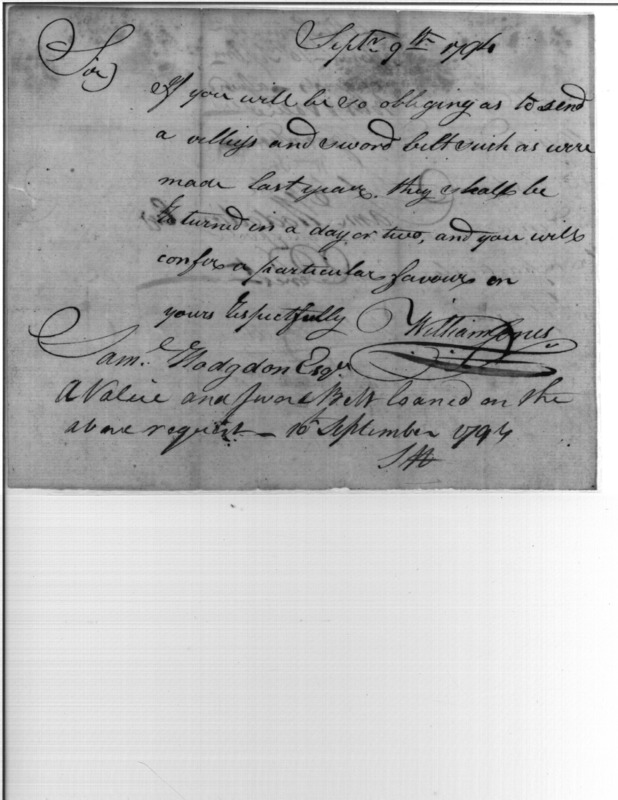 Septr. 9th 1794
Sir
If you will be so obliging as to send
a vallieys and sword belt such as were
made last year. they shall be
returned in a day or two, and you will
confer a particular favour on
yours respectfully William Jones
Saml. Hodgdon Esqr.
A Valise and sword Belt loaned on the
above request – 10 September 1794
SH